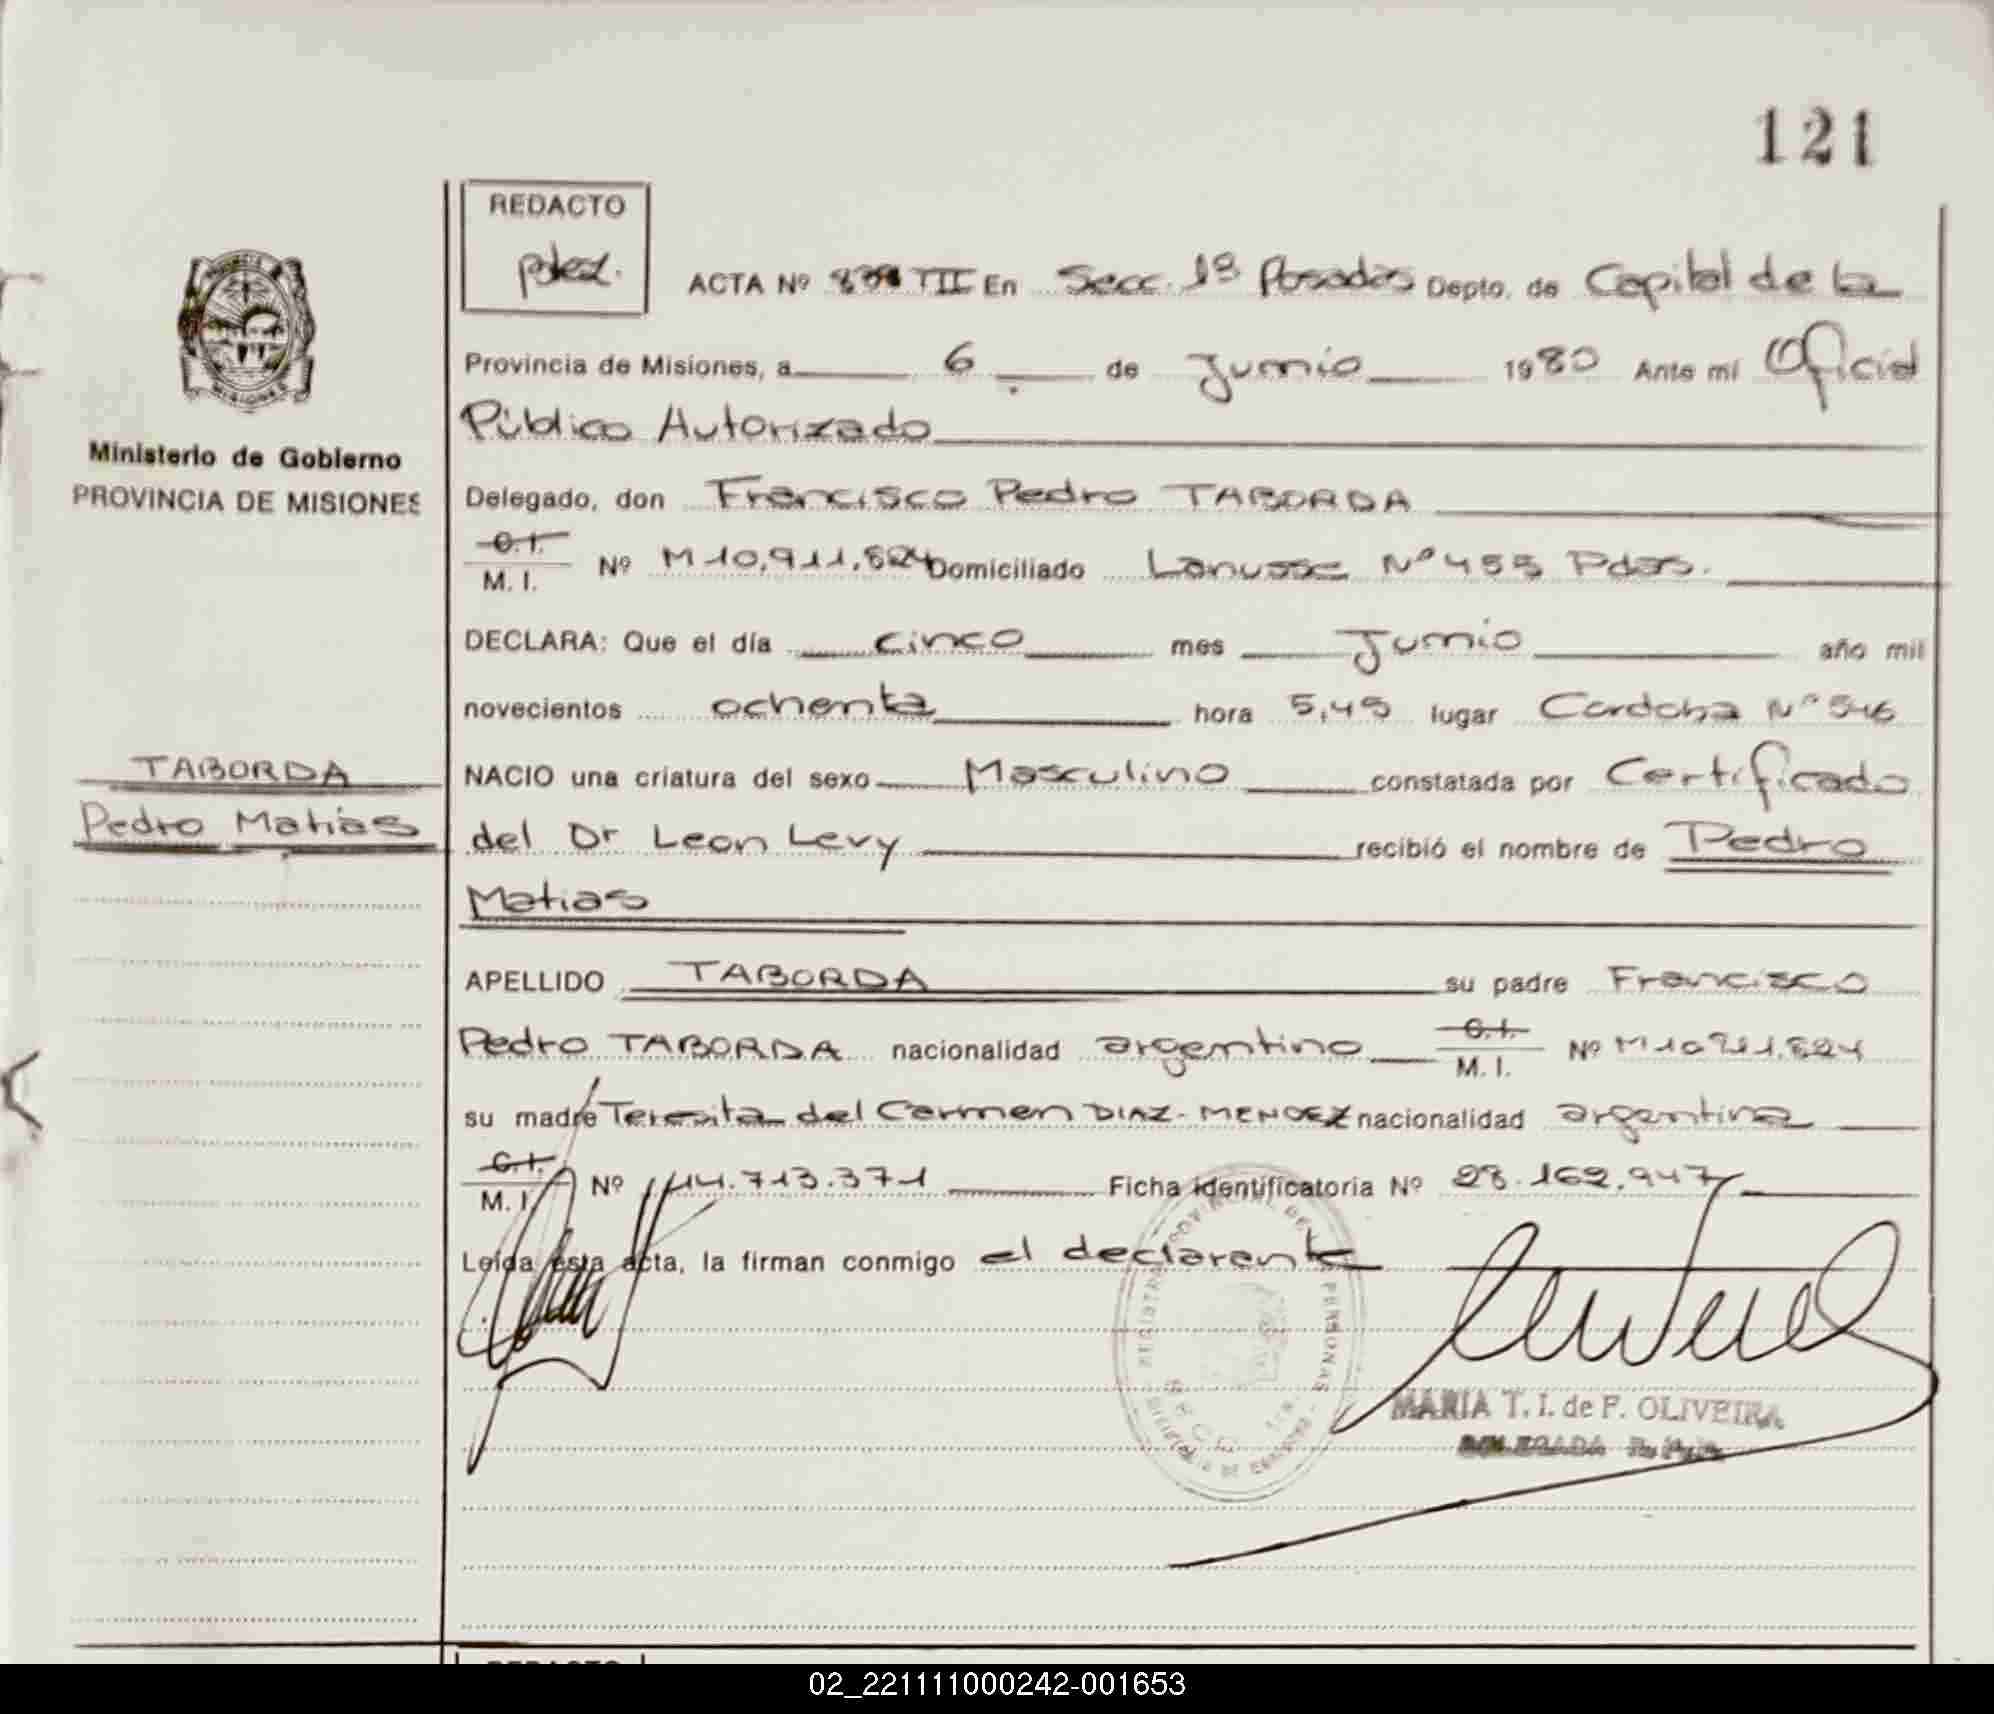 121
REDACTO
ACTA Nº III En Secc. 1ª Posadas Depto. de Capital de la
Provincia de Misiones, a 6 de Junio 1980 Ante mí Oficial
Público Autorizado
Ministerio de Gobierno
PROVINCIA DE MISIONES
Delegado, don Francisco Pedro TABORDA
C.I.
M. I. Nº M 10,911,524 Domiciliado Lanusse Nº 455 Pdas.
DECLARA: Que el día cinco mes Junio año mil
novecientos ochenta hora 5,45 lugar Cordoba Nº 546
TABORDA
Pedro Matias
NACIO una criatura del sexo Masculino constatada por Certificado
del Dr Leon Levy recibió el nombre de Pedro
Matias
APELLIDO TABORDA su padre Francisco
Pedro TABORDA nacionalidad argentino C.I.
M. I. Nº
su madre Teresita del Carmen DIAZ-MENDEZ nacionalidad argentina
C.I.
M. I. Nº 14.713.371 Ficha identificatoria Nº 28.162.947
Leída esta acta, la firman conmigo el declarante
REGISTRO PROVINCIAL DE PERSONAS
MARIA T. I. de F. OLIVEIRA
DELEGADA
REDACTO
02_221111000242-001653